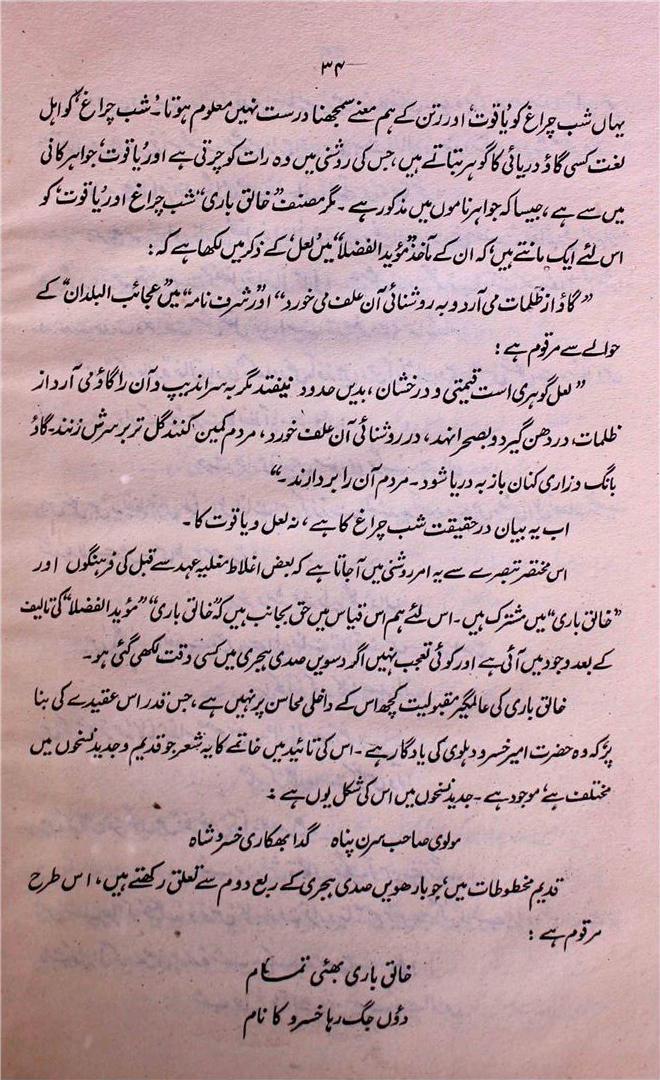 ۳۴
یہاں شب چراغ کو یاقوت، اور رتن کے ہم معنے سمجھنا درست نہیں معلوم ہوتا۔ شب چراغ کو اہل
لغت کسی گاؤ دریائی کا گوہر بتاتے ہیں، جس کی روشنی میں وہ رات کو چرتی ہے اور یاقوت، جواہر کانی
میں سے ہے، جیسا کہ جواہر ناموں میں مذکور ہے۔ مگر مصنف ”خالق باری“ شب چراغ اور یاقوت، کو
اس لئے ایک مانتے ہیں، کہ ان کے ماخذ ”مؤید الفضلا“ میں لعل، کے ذکر میں لکھا ہے کہ:
”گاؤ از ظلمات می آرد و بہ روشنائی آن علف می خورد“ اور ”شرف نامہ“ میں ”عجائب البلدان“ کے
حوالے سے مرقوم ہے:
”لعل گوہری است قیمتی و درخشان، بدیں حدود نیفتد مگر بہ سراندیپ و آن را گاؤ می آرد از
ظلمات، در دھن گیرد و بصحرا نہد، در روشنائی آن علف خورد، مردم کمین کنند گل تر بر سرش زنند۔ گاؤ
بانگ و زاری کنان باز بہ دریا شود۔ مردم آن را بردارند۔“
اب یہ بیان در حقیقت شب چراغ کا ہے، نہ لعل و یاقوت کا۔
اس مختصر تبصرے سے یہ امر روشنی میں آ جاتا ہے کہ بعض اغلاط مغلیہ عہد سے قبل کی فرہنگوں اور
”خالق باری“ میں مشترک ہیں۔ اس لئے ہم اس قیاس میں حق بجانب ہیں کہ ”خالق باری“ ”مؤید الفضلا“ کی تالیف
کے بعد وجود میں آئی ہے اور کوئی تعجب نہیں اگر دسویں صدی ہجری میں کسی وقت لکھی گئی ہو۔
خالق باری کی عالمگیر مقبولیت کچھ اس کے داخلی محاسن پر نہیں ہے، جس قدر اس عقیدے کی بنا
پر، کہ وہ حضرت امیر خسرو دہلوی کی یادگار ہے۔ اس کی تائید میں خاتمے کا یہ شعر جو قدیم و جدید نسخوں میں
مختلف ہے، موجود ہے۔ جدید نسخوں میں اس کی شکل یوں ہے:
مولوی صاحب سرن پناہ گدا بھکاری خسرو شاہ
قدیم مخطوطات میں، جو بارھویں صدی ہجری کے ربع دوم سے تعلق رکھتے ہیں، اس طرح
مرقوم ہے:
خالق باری بھئی تمام
دوں جگ رہا خسرو کا نام